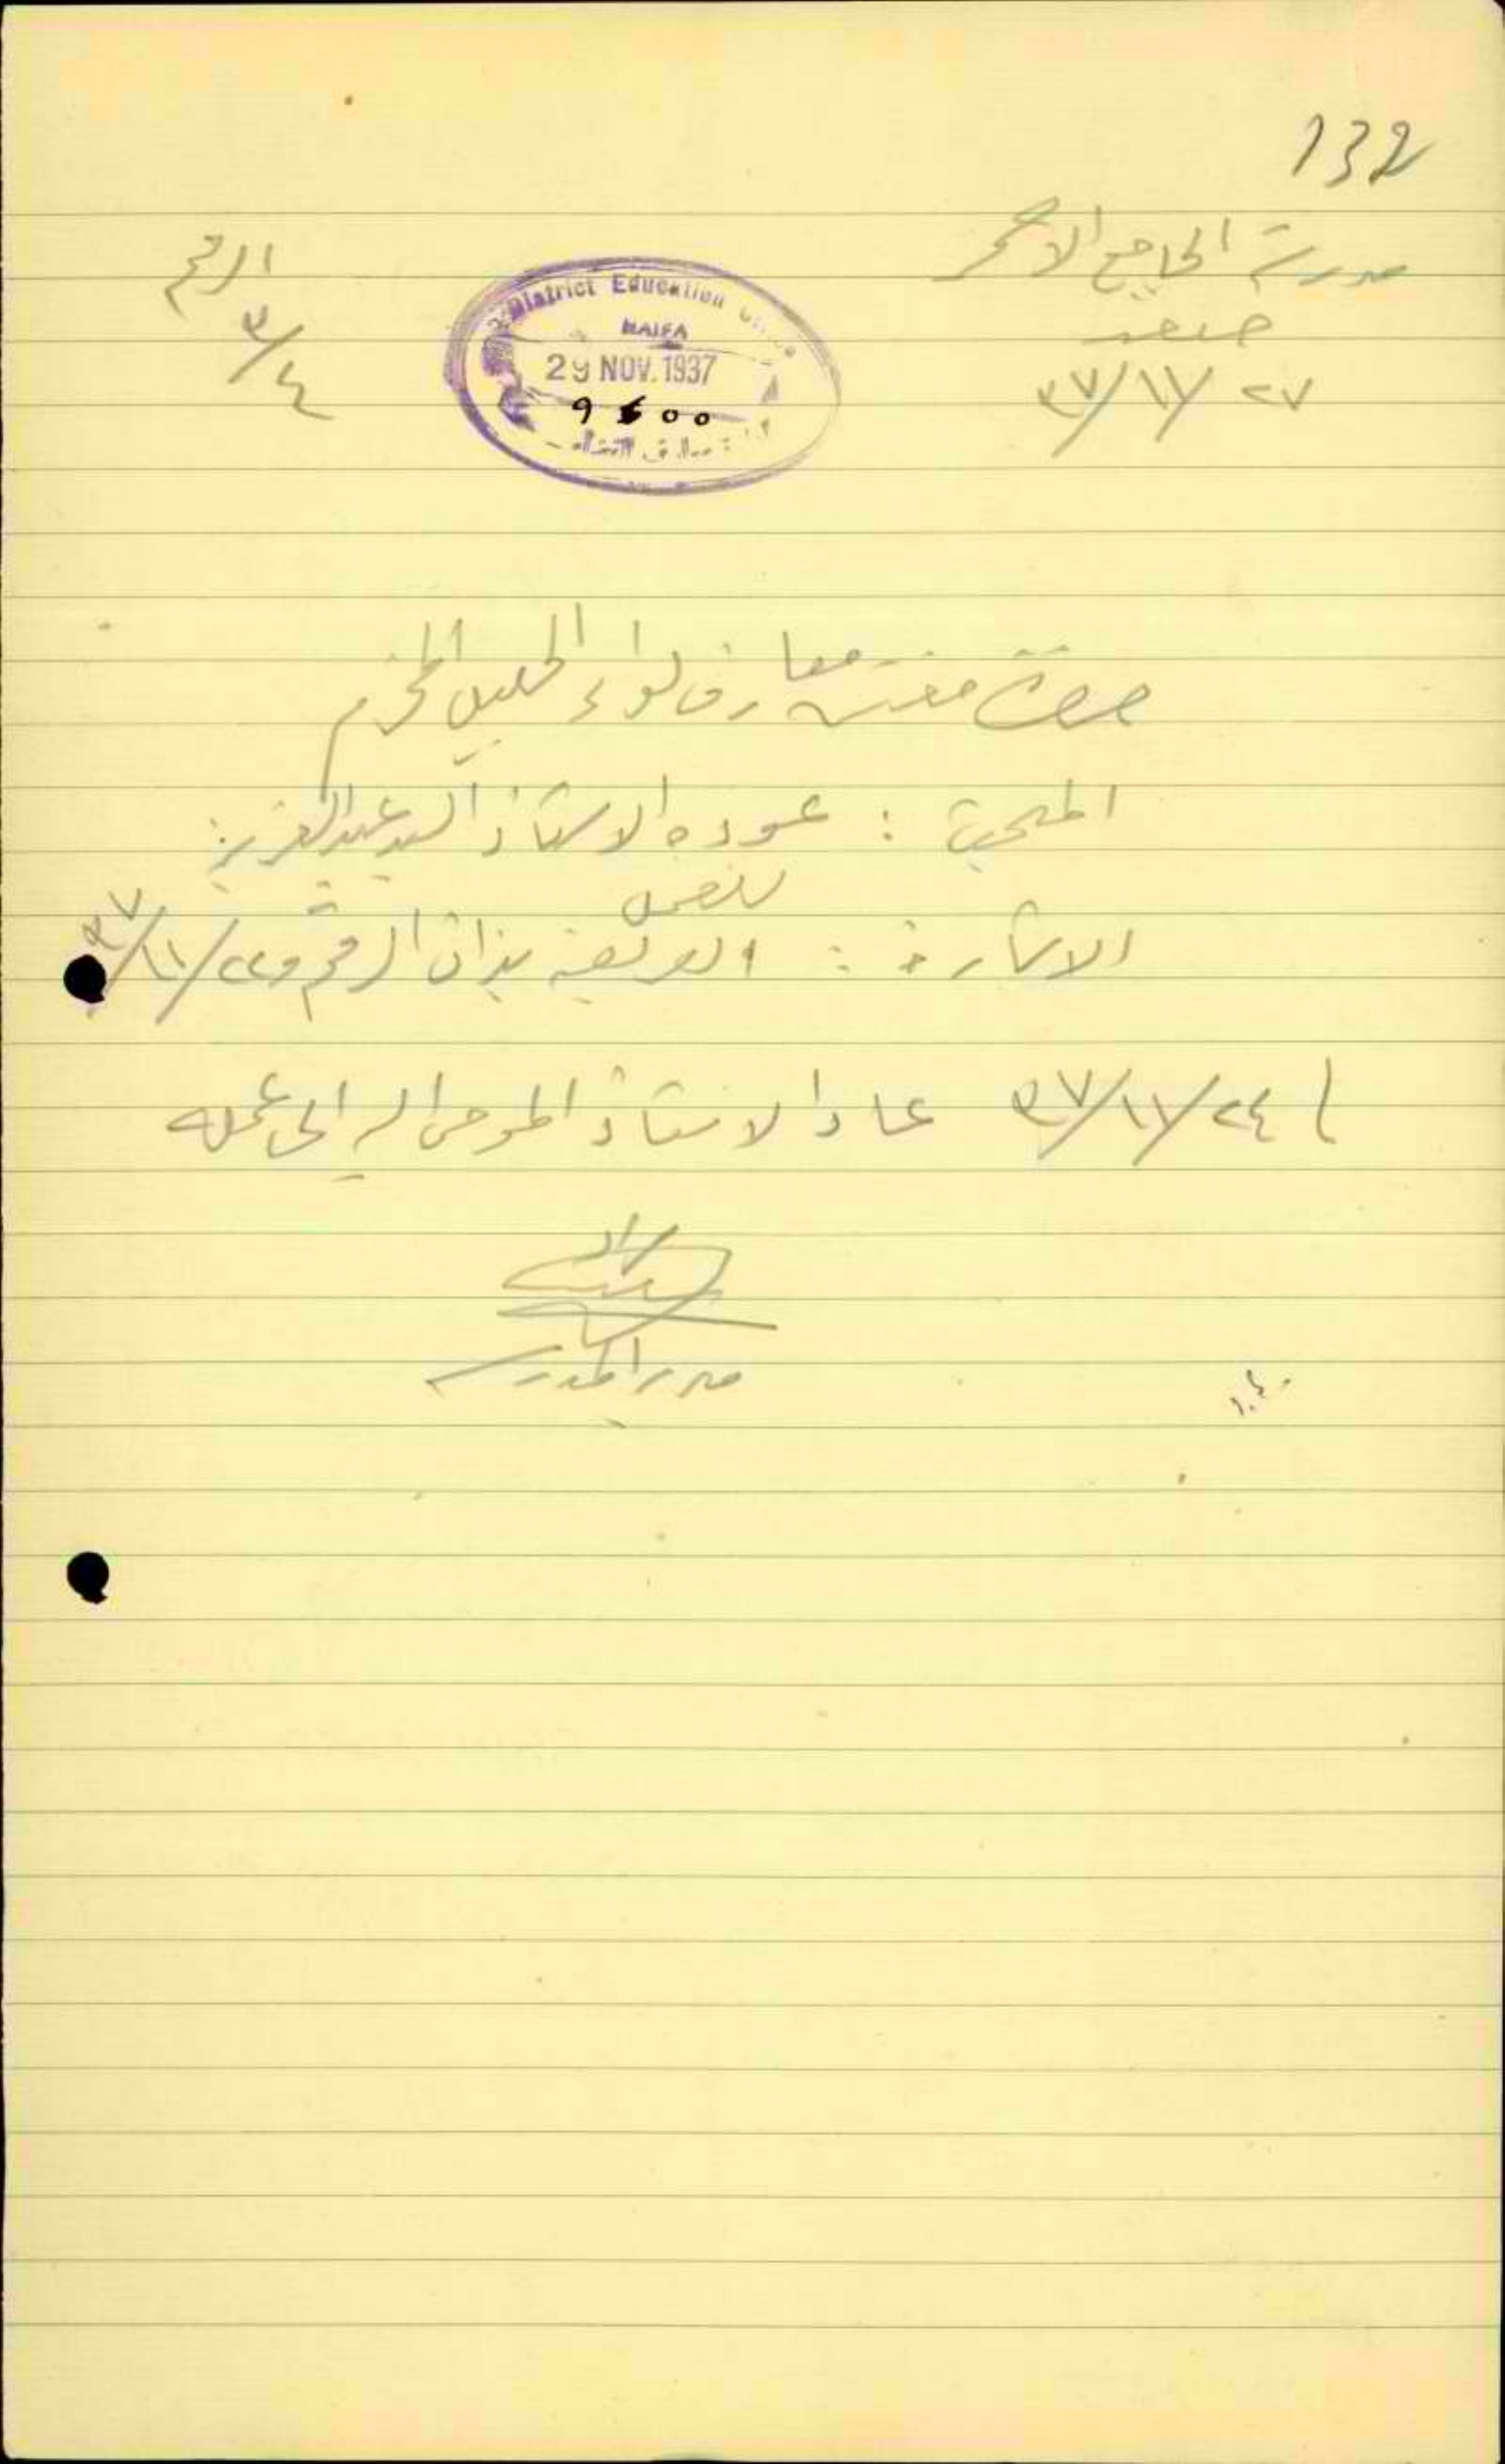 132
مدرسة الجامع الاحمر
صفد
٢٧/١١/٣٧
الرقم
٣/٤
District Education
HAIFA
29 NOV. 1937
9500
حضرة مفتش معارف لواء الجليل المحترم
المبحث : عودة الاستاذ السيد عبد العزيز
للعمل
الاشارة : العريضة بذات الرقم و ٢٢/١١/٣٧
٢٤/١١/٣٧ عاد الاستاذ المومى اليه الى عمله
مدير المدرسة